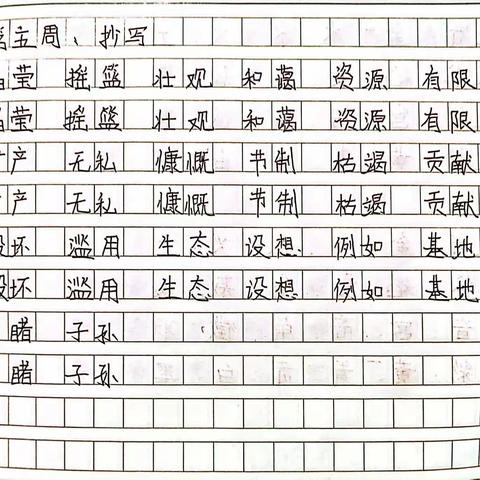 第五周、抄写
晶莹 摇篮 壮观 和蔼 资源 有限
晶莹 摇篮 壮观 和蔼 资源 有限
矿产 无私 慷慨 节制 枯竭 贡献
矿产 无私 慷慨 节制 枯竭 贡献
毁坏 滥用 生态 设想 例如 基地
毁坏 滥用 生态 设想 例如 基地
睹 子孙
睹 子孙